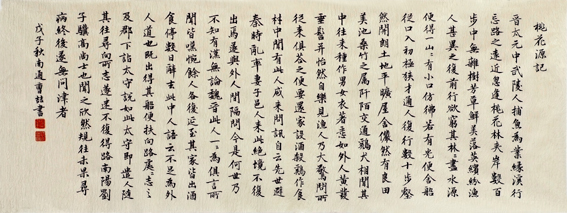 桃花源記
晉太元中武陵人捕魚為業緣溪行
忘路之遠近忽逢桃花林夾岸數百
步中無雜樹芳草鮮美落英繽紛漁
人甚異之復前行欲窮其林林盡水源
便得一山山有小口仿佛若有光便舍船
從口入初極狹才通人復行數十步豁
然開朗土地平曠屋舍儼然有良田
美池桑竹之屬阡陌交通雞犬相聞其
中往來種作男女衣著悉如外人黃髮
垂髫并怡然自樂見漁人乃大驚問所
從來具答之便要還家設酒殺雞作食
村中聞有此人咸來問訊自云先世避
秦時亂率妻子邑人來此絕境不復
出焉遂與外人間隔問今是何世乃
不知有漢無論魏晉此人一一為具言所
聞皆嘆惋餘人各復延至其家皆出酒
食停數日辭去此中人語云不足為外
人道也既出得其船便扶向路處處志之
及郡下詣太守說如此太守即遣人隨
其往尋向所志遂迷不復得路南陽劉
子驥高尚士也聞之欣然規往未果尋
病終後遂無問津者
戊子秋南通曹桂書